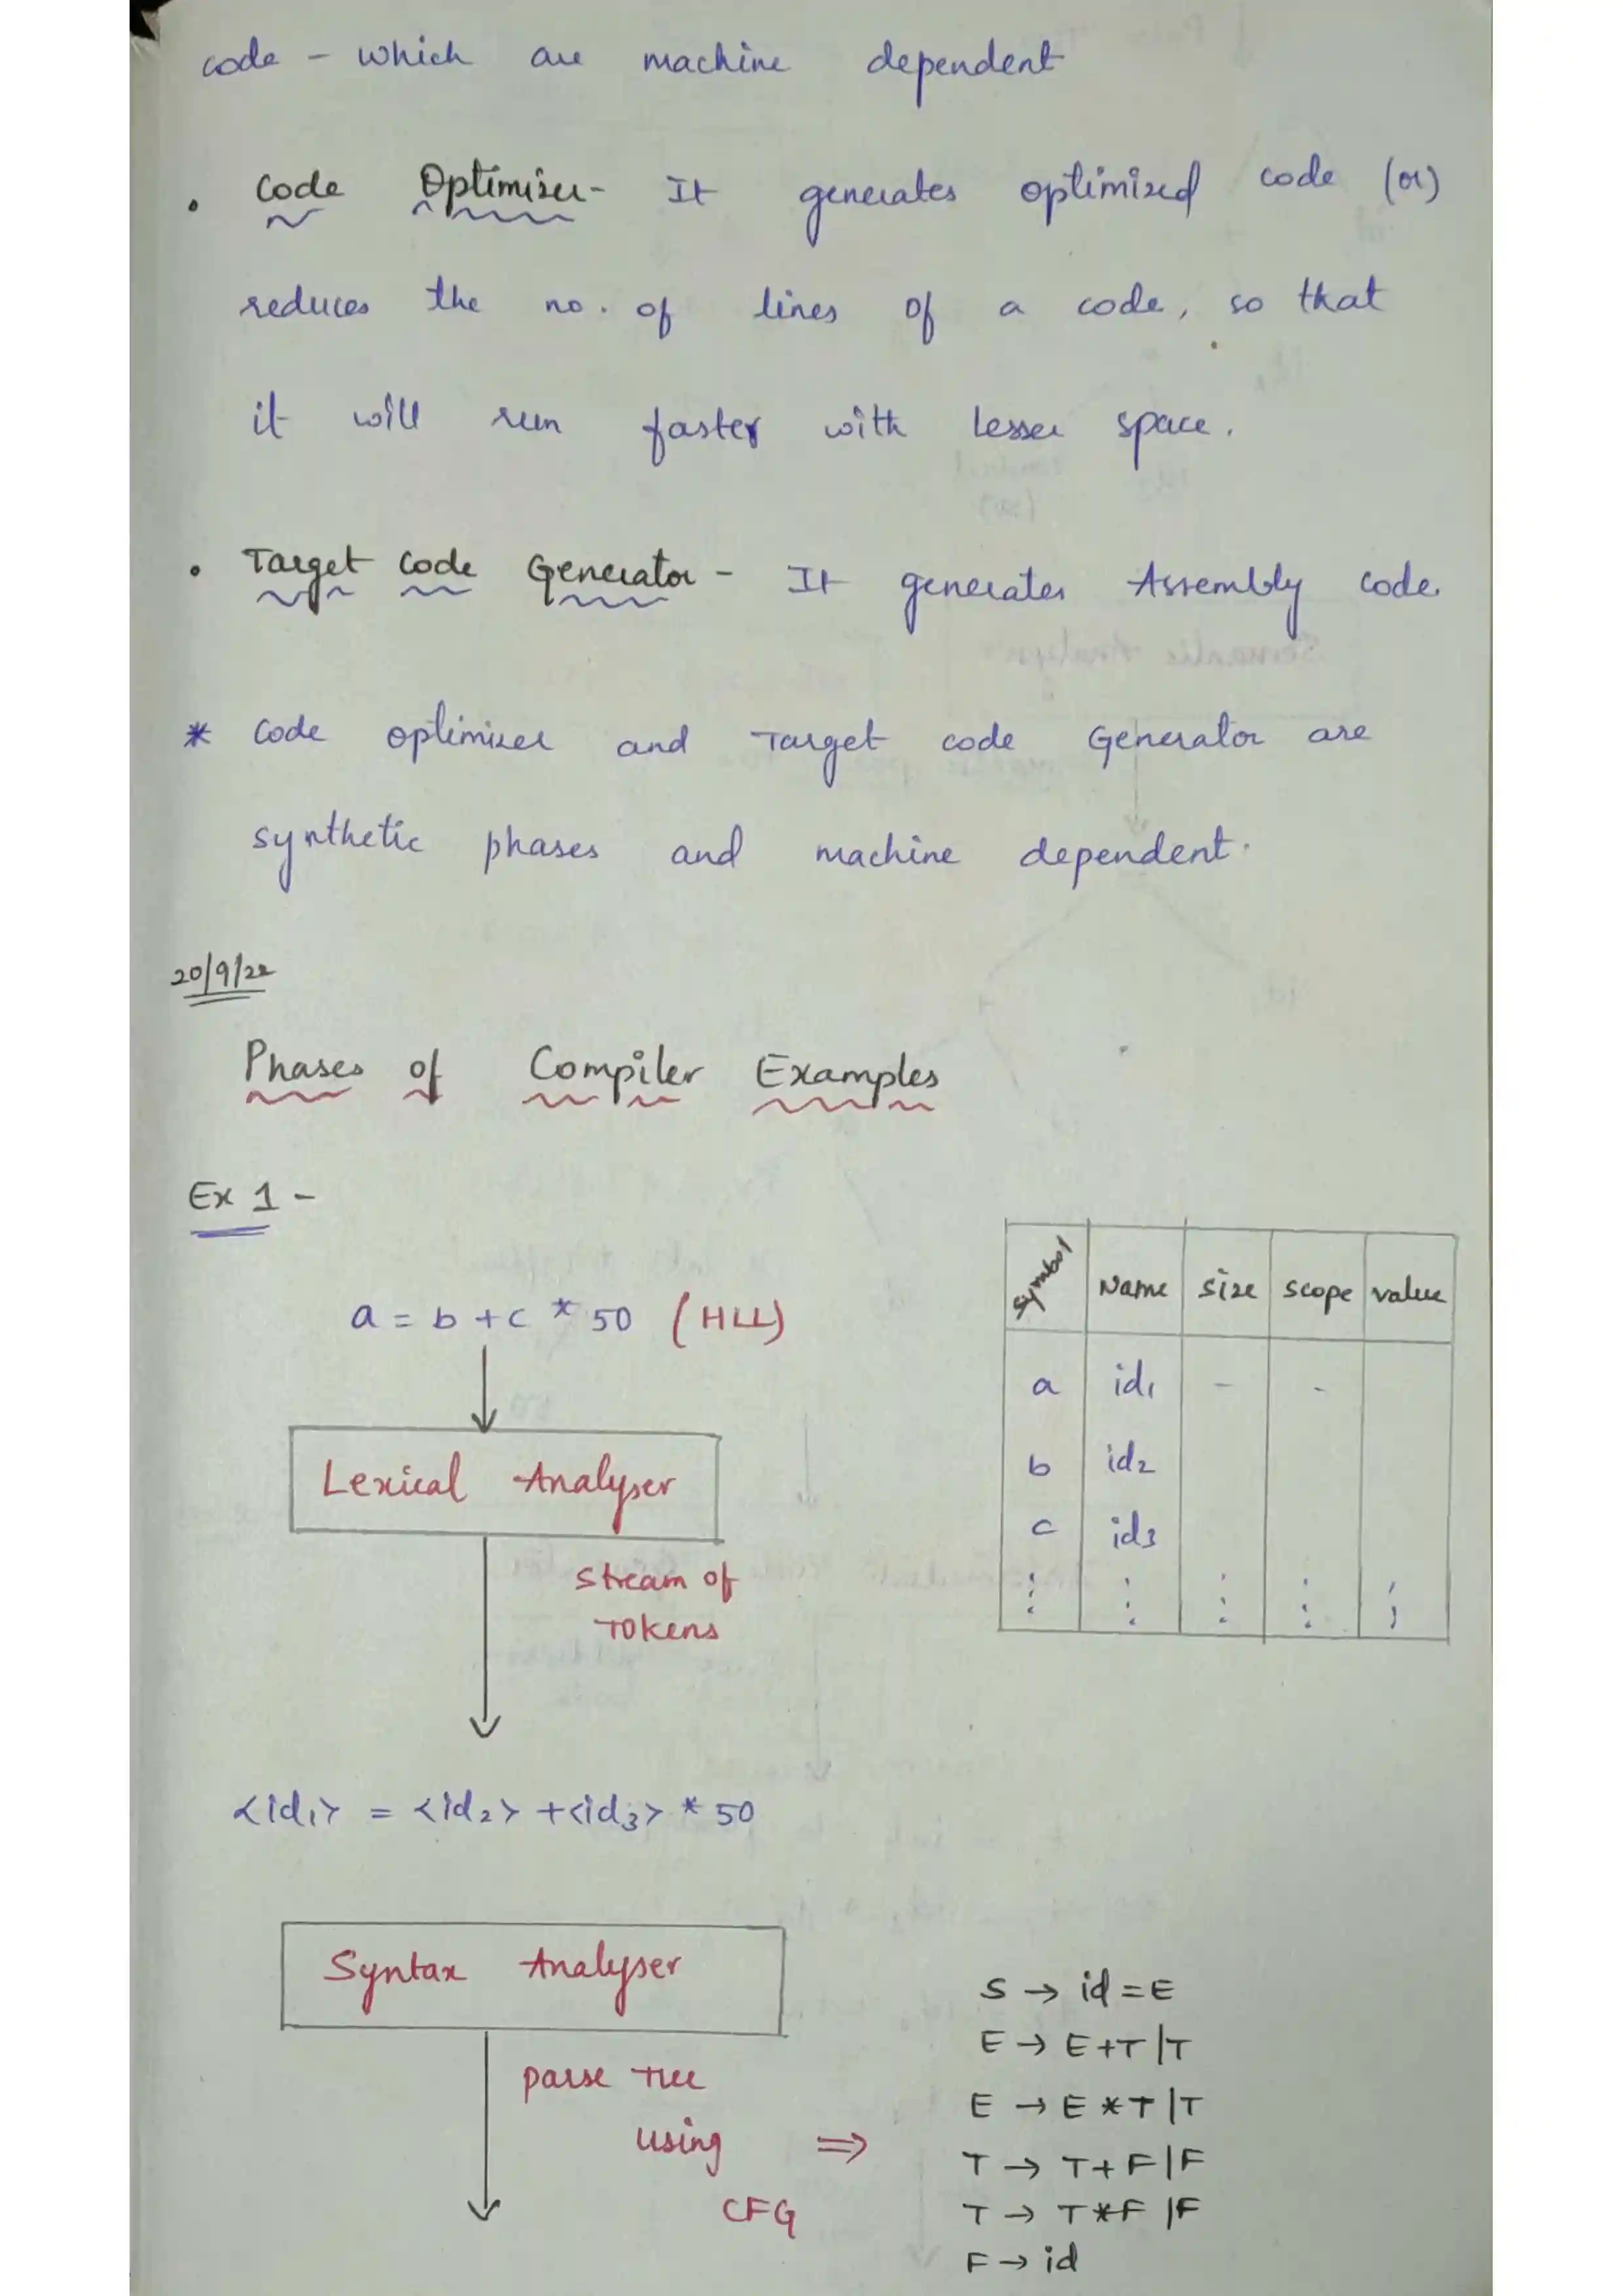 code - which are machine dependent
• Code Optimiser - It generates optimized code (or)
reduces the no. of lines of a code, so that
it will run faster with lesser space.
• Target Code Generator - It generates Assembly code.
* Code optimizer and Target code Generator are
synthetic phases and machine dependent.
20/9/22
Phases of Compiler Examples
Ex 1 -
a = b + c * 50 (HLL)
Lexical Analyser
stream of
Tokens
Symbol Name size scope value
a id1 - -
b id2
c id3
⋮ ⋮ ⋮ ⋮ ⋮
<id1> = <id2> + <id3> * 50
Syntax Analyser
parse tree
using ⇒
CFG
S → id = E
E → E + T | T
E → E * T | T
T → T + F | F
T → T * F | F
F → id